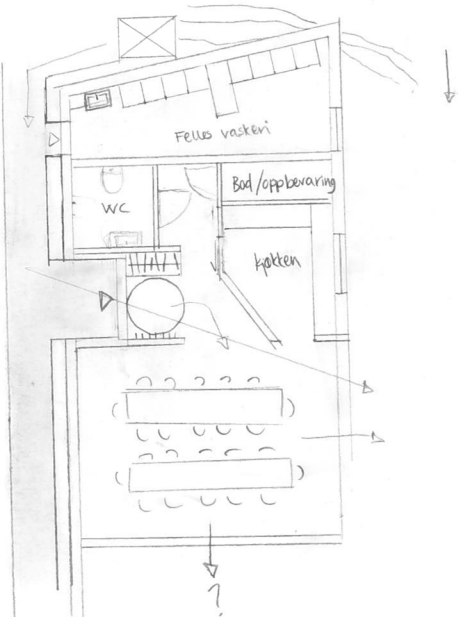 Felles vaskeri
Bod/oppbevaring
WC
kjøkken
?